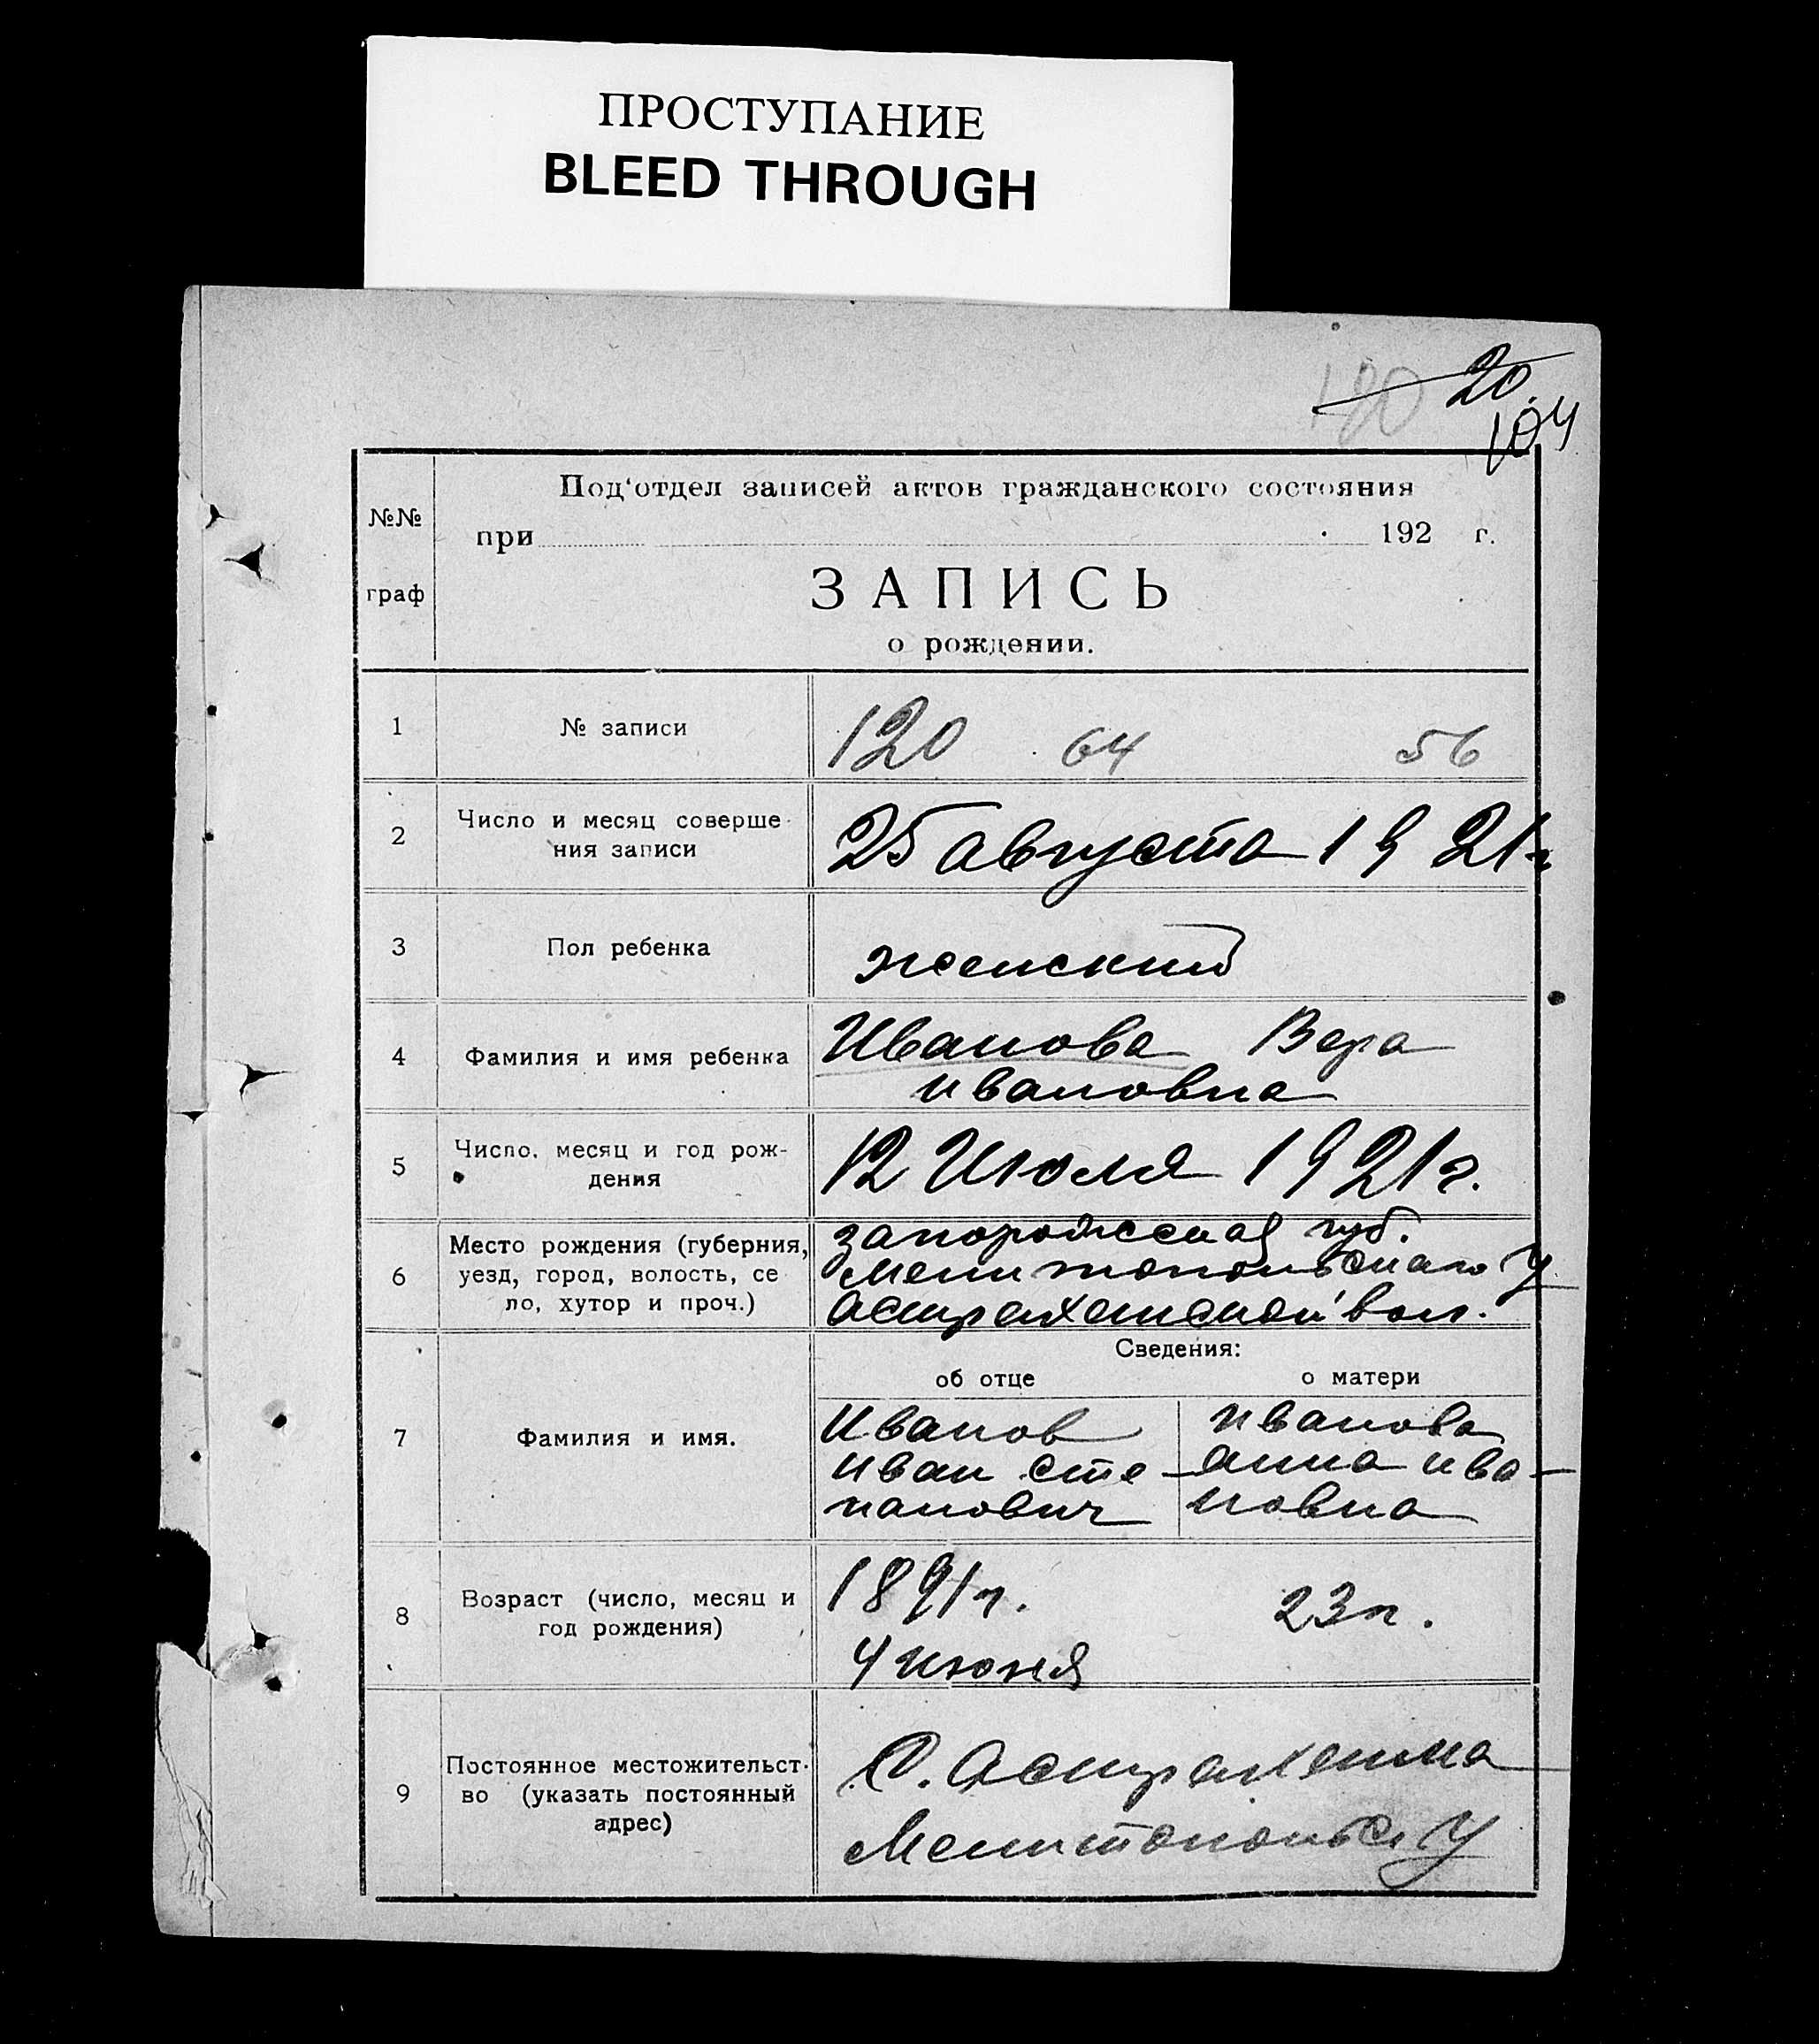 ПРОСТУПАНИЕ
BLEED THROUGH
120 20.
104
№№ граф
Под'отдел записей актов гражданского состояния
при 192 г.
ЗАПИСЬ
о рождении.
1 № записи 120 64 56
2 Число и месяц соверше-
ния записи
25 августа 1921 г.
3 Пол ребенка женский
4 Фамилия и имя ребенка Иванова Вера
Ивановна
5 Число, месяц и год рож-
дения
12 Июля 1921 г.
6 Место рождения (губерния,
уезд, город, волость, се
ло, хутор и проч.)
Запорожская губ.
Мелитопольскаго У
Астраханской вол.
Сведения:
об отце о матери
7 Фамилия и имя.
Иванов
Иван Сте-
панович
Иванова
Анна Ива-
новна
8 Возраст (число, месяц и
год рождения)
1891 г.
4 июня
23 л.
9 Постоянное местожительст-
во (указать постоянный
адрес)
С. Астраханка
Мелитопольс У